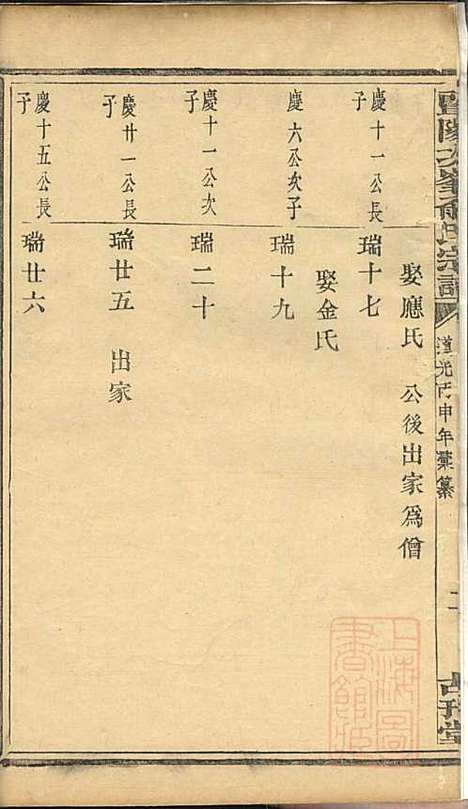 暨陽次峯俞氏宗譜
道光丙申年彙纂
二
古孝堂
娶應氏 公後出家爲僧
慶十一公長子
瑞十七
娶金氏
慶六公次子
瑞十九
慶十一公次子
瑞二十
慶廿一公長子
瑞廿五 出家
慶十五公長子
瑞廿六
上海圖書館藏